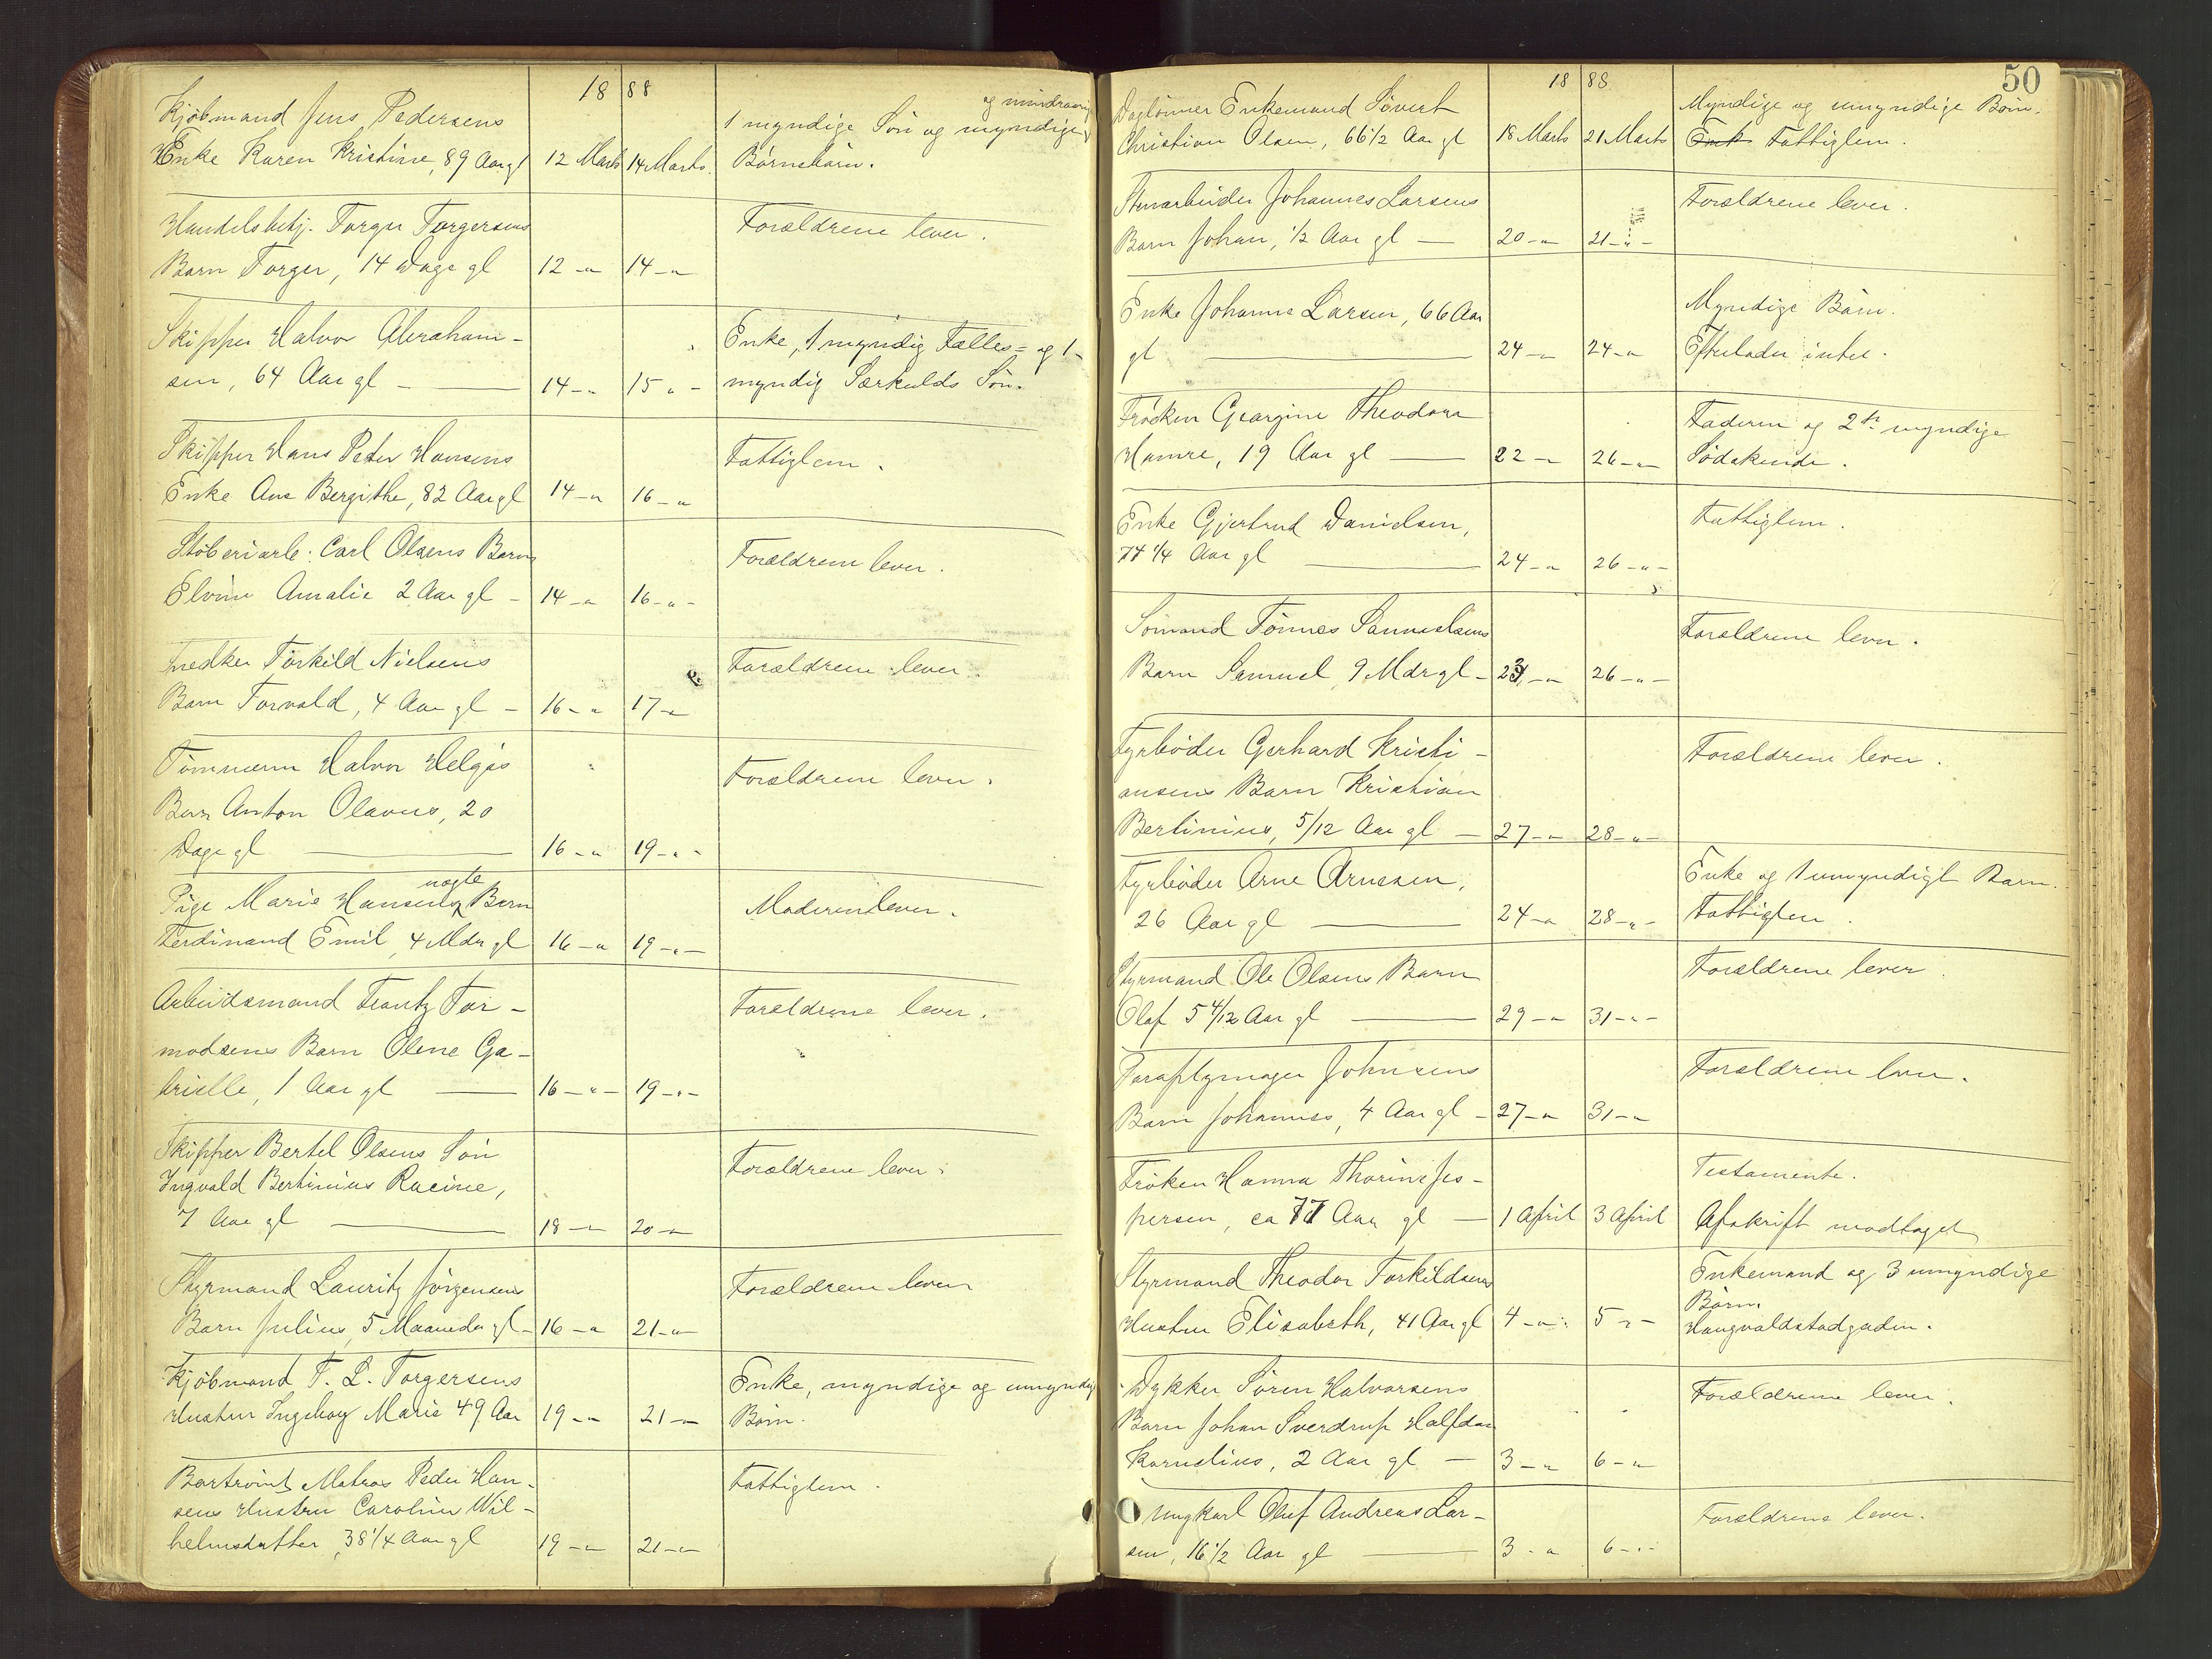 1888
og mindreaarig
Kjöbmand Jens Pedersens
1 myndige Sön og myndige
Enke Karen Kristine, 89 Aar gl 12 Marts 14 Marts. Börnebörn.
Handelsbetj. Torger Torgersens
Forældrene lever.
Barn Torger, 14 Dage gl 12 -"- 14 -"-
Skipper Halvor Abraham-
Enke, 1 myndig Fælles- og 1
sen, 64 Aar gl - 14 -"- 15 -"- myndig Særkulds Sön.
Skipper Hans Peter Hansens
Fattiglem.
Enke Ane Bergithe, 82 Aar gl 14 -"- 16 -"-
Stöberiarb. Carl Olsens Barn
Forældrene lever.
Elvine Amalie 2 Aar gl - 14 -"- 16 -"-
Snedker Törkild Nielsens
Forældrene lever.
Barn Torvald, 4 Aar gl - 16 -"- 17 -"-
Tömmerm Halvor Helgös
Forældrene lever.
Barn Anton Olavus, 20
Dage gl 16 -"- 19 -"-
uægte
Pige Marie Hansens Barn
Moderen lever.
Ferdinand Emil, 4 Mdr gl 16 -"- 19 -"-
Arbeidsmand Frantz Tor-
Forældrene lever.
modsens Barn Olene Ga-
brielle, 1 Aar gl 16 -"- 19 -"-
Skipper Bertel Olsens Sön
Forældrene lever.
Ingvald Bertinius Racine,
7 Aar gl 18 -"- 20 -"-
Styrmand Lauritz Jörgensens
Forældrene lever
Barn Julius, 5 Maaneder gl - 16 -"- 21 -"-
Kjöbmand T. L. Torgersens
Enke, myndige og umyndig
Hustru Ingeborg Marie 49 Aar 19 -"- 21 -"- Börn.
Bortrömt Matros Peder Han-
Fattiglem.
sens Hustru Caroline Wil-
helmsdatter, 38 1/4 Aar gl 19 -"- 21 -"-
50
1888
Daglönner Enkemand Sövert
Myndige og umyndige Börn.
Christian Olsen, 66 1/2 Aar gl 18 Marts 21 Marts Enk Fattiglem.
Stenarbeider Johannes Larsens
Forældrene lever.
Barn Johan, 1/2 Aar gl - 20 -"- 21 -"-
Enke Johanne Larsen, 66 Aar
Myndige Börn.
gl 24 -"- 24 -"- Efterlader intet.
Fröken Georgine Theodora
Faderen og 2de myndige
Hamre, 19 Aar gl 22 -"- 26 -"- Södskende.
Enke Gjertrud Danielsen,
Fattiglem.
77 1/4 Aar gl 24 -"- 26 -"-
Sömand Tönnes Samuelsens
Forældrene lever.
Barn Samuel, 9 Mdr gl - 23 -"- 26 -"-
Fyrböder Gerhard Kristi-
Forældrene lever.
ansens Barn Kristian
Bertinius, 5/12 Aar gl - 27 -"- 28 -"-
Fyrböder Arne Arnesen,
Enke og 1 umyndigt Barn.
26 Aar gl 24 -"- 28 -"- Fattiglem.
Styrmand Ole Olsens Barn
Forældrene lever.
Olaf 5 4/12 Aar gl 29 -"- 31 -"-
Paraplymager Johnsens
Forældrene lever.
Barn Johannes, 4 Aar gl - 27 -"- 31 -"-
Fröken Hanna Thorine Jes-
Testamente.
persen, ca 77 Aar gl - 1 April 3 April Afskrift modtaget
Styrmand Theodor Torkildsens
Enkemand og 3 umyndige
Börn.
Hustru Elisabeth, 41 Aar gl 4 -"- 5 -"- Haugvaldstadgaden.
Dykker Sören Halvorsens
Forældrene lever.
Barn Johan Sverdrup Halfdan
Kornelius, 2 Aar gl - 3 -"- 6 -"-
Ungkarl Oluf Andreas Lar-
Forældrene lever.
sen, 16 1/2 Aar gl 3 -"- 6 -"-